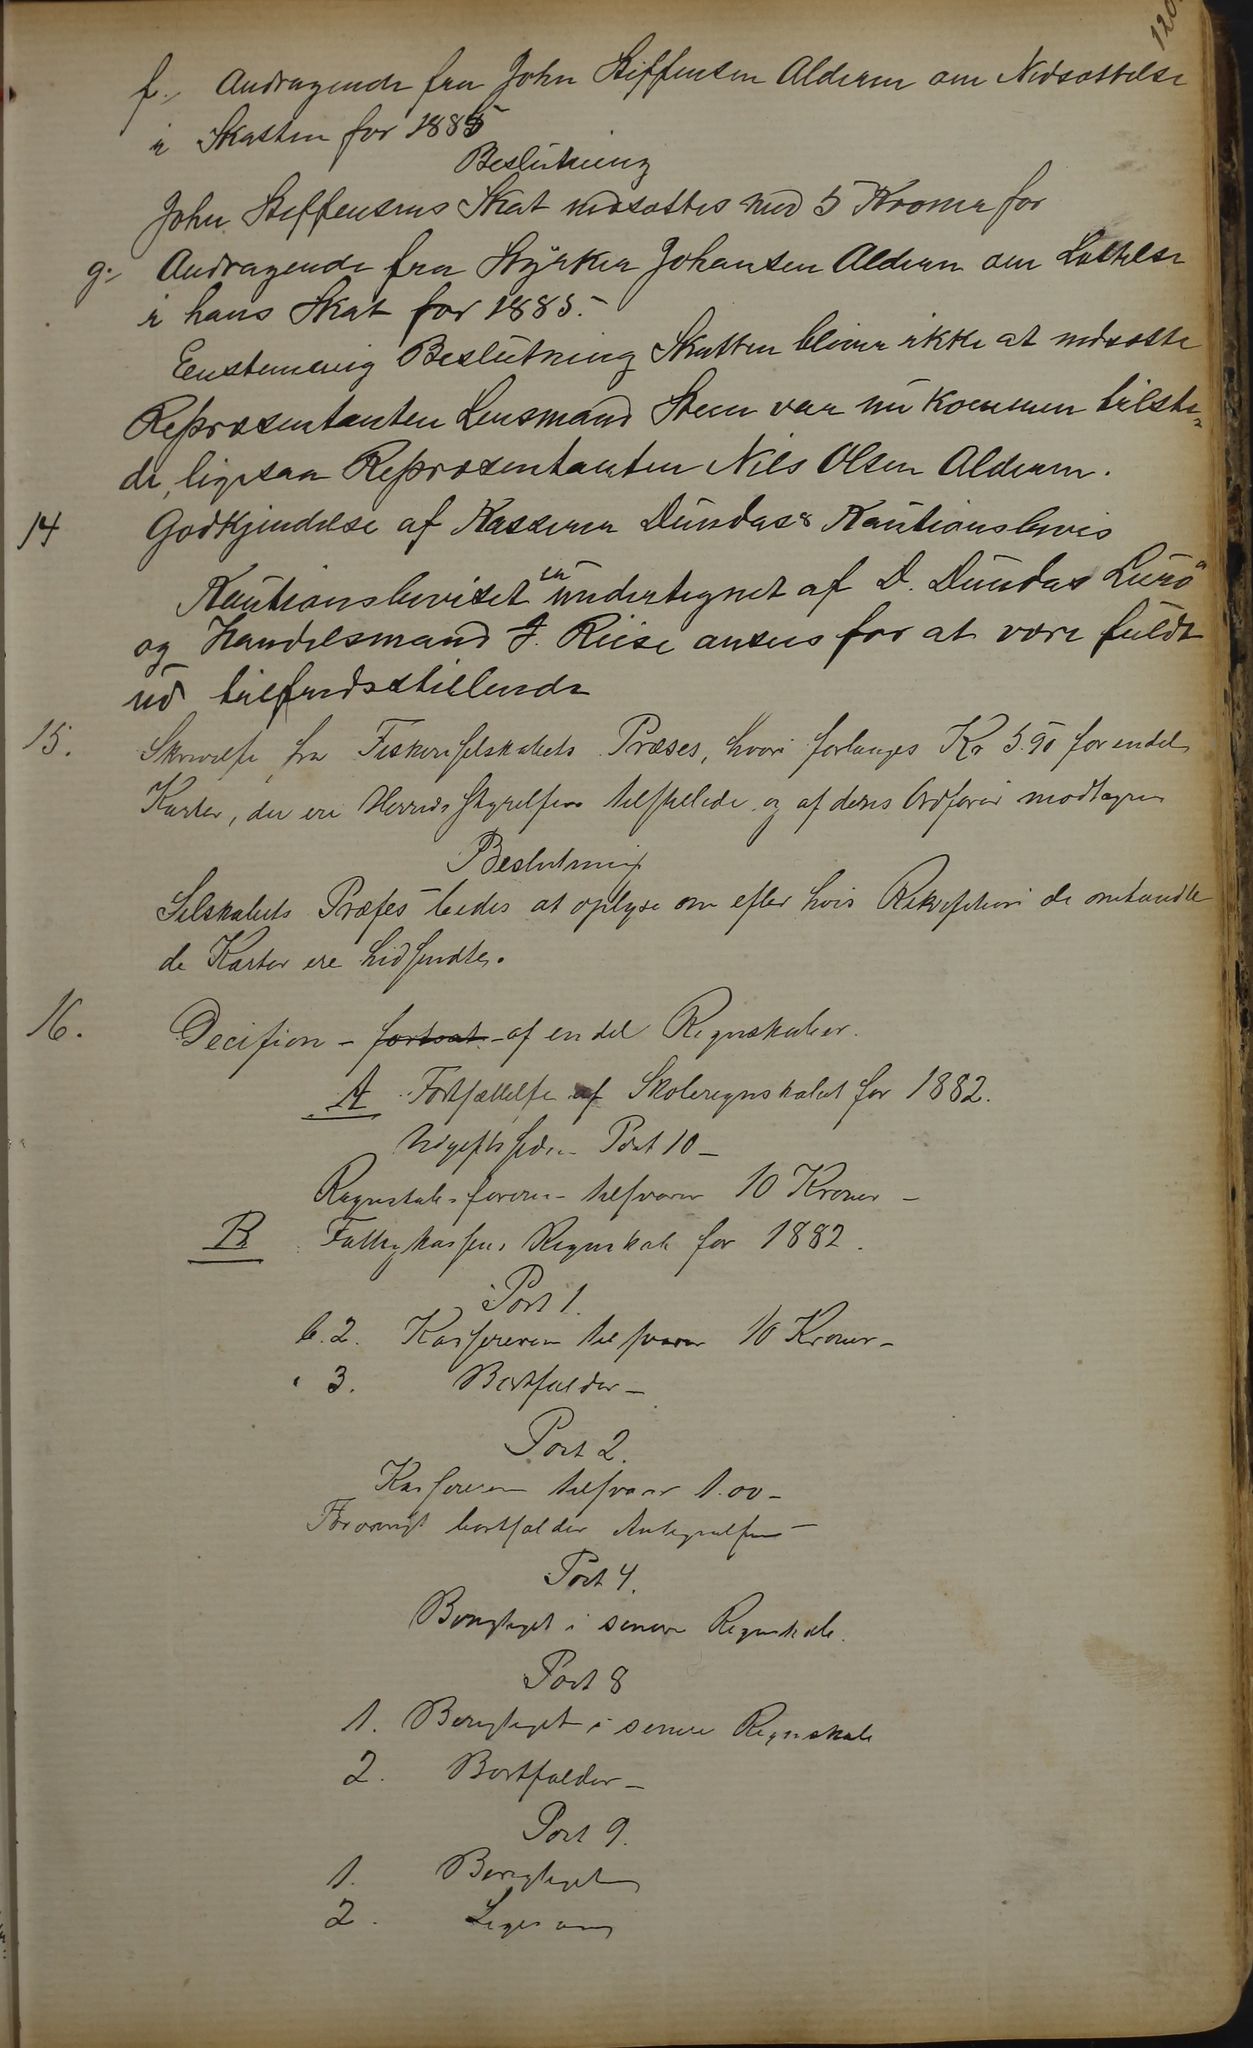 120.
f., Andragende fra John Steffensen Alderen om Nedsættelse
i Skatten for 1885
Beslutning
John Steffensens Skat nedsættes med 5 Kroner for
g., Andragende fra Styrker Johansen Alderen om Lettelse
i hans Skat for 1885.
Eenstemmig Beslutning Skatten bliver ikke at nedsætte
Repræsentanten Lensmand Steen var nu kommen tilste-
de, ligesaa Repræsentanten Nils Olsen Alderen.
14 Godkjendelse af Kasserer Dundas's Kautionsbevis
Kautionsbeviset er undertegnet af D. Dundas Lurø
og Handelsmand J. Riise ansees for at være fuldt
ud tilfredsstillende
15. Skrivelse fra Fiskeriselskabets Præses, hvori forlanges Kr 5.90 for endel
Karter, der ere Herredsstyrelsen tilstillede og af dens Ordfører modtagen
Beslutning
Selskabets Præses bedes at oplyse om efter hvis Rekvisition de omhandle
de Karter ere hidsendte.
16. Decision - fortsat - af endel Regnskaber.
A Fortsættelse af Skoleregnskabet for 1882.
Udgiftssiden Post 10 -
Regnskabsføreren tilsvarer 10 Kroner -
B Fattigkassens Regnskab for 1882.
Post 1.
b. 2. Kassereren tilsvarer 10 Kroner -
" 3. Bortfalder -
Post 2.
Kassereren tilsvarer 1.00 -
Forøvrigt bortfalder Antegnelsen -
Post 4.
Berigtiget i senere Regnskab.
Post 8
1. Berigtiget i senere Regnskab
2. Bortfalder -
Post 9.
1. Berigtiget
2. Ligesaa